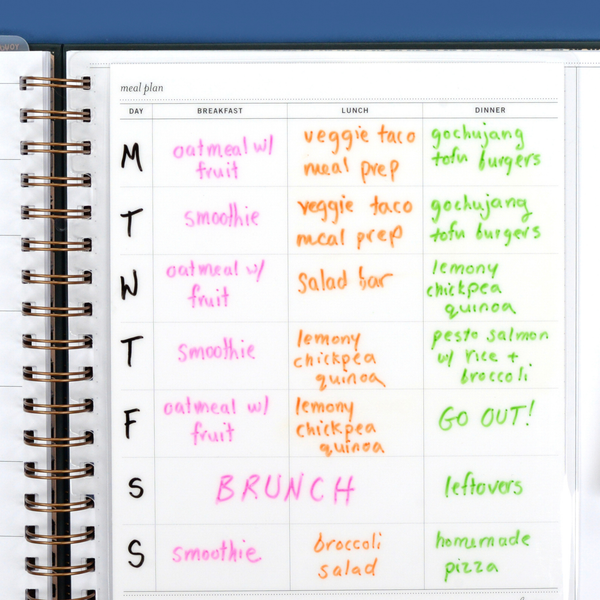 meal plan
DAY BREAKFAST LUNCH DINNER
M
oatmeal w/
fruit
veggie taco
meal prep
gochujang
tofu burgers
T
smoothie
veggie taco
meal prep
gochujang
tofu burgers
W
oatmeal w/
fruit
salad bar
lemony
chickpea
quinoa
T
smoothie
lemony
chickpea
quinoa
pesto salmon
w/ rice +
broccoli
F
oatmeal w/
fruit
lemony
chickpea
quinoa
GO OUT!
S
BRUNCH
leftovers
S
smoothie
broccoli
salad
homemade
pizza